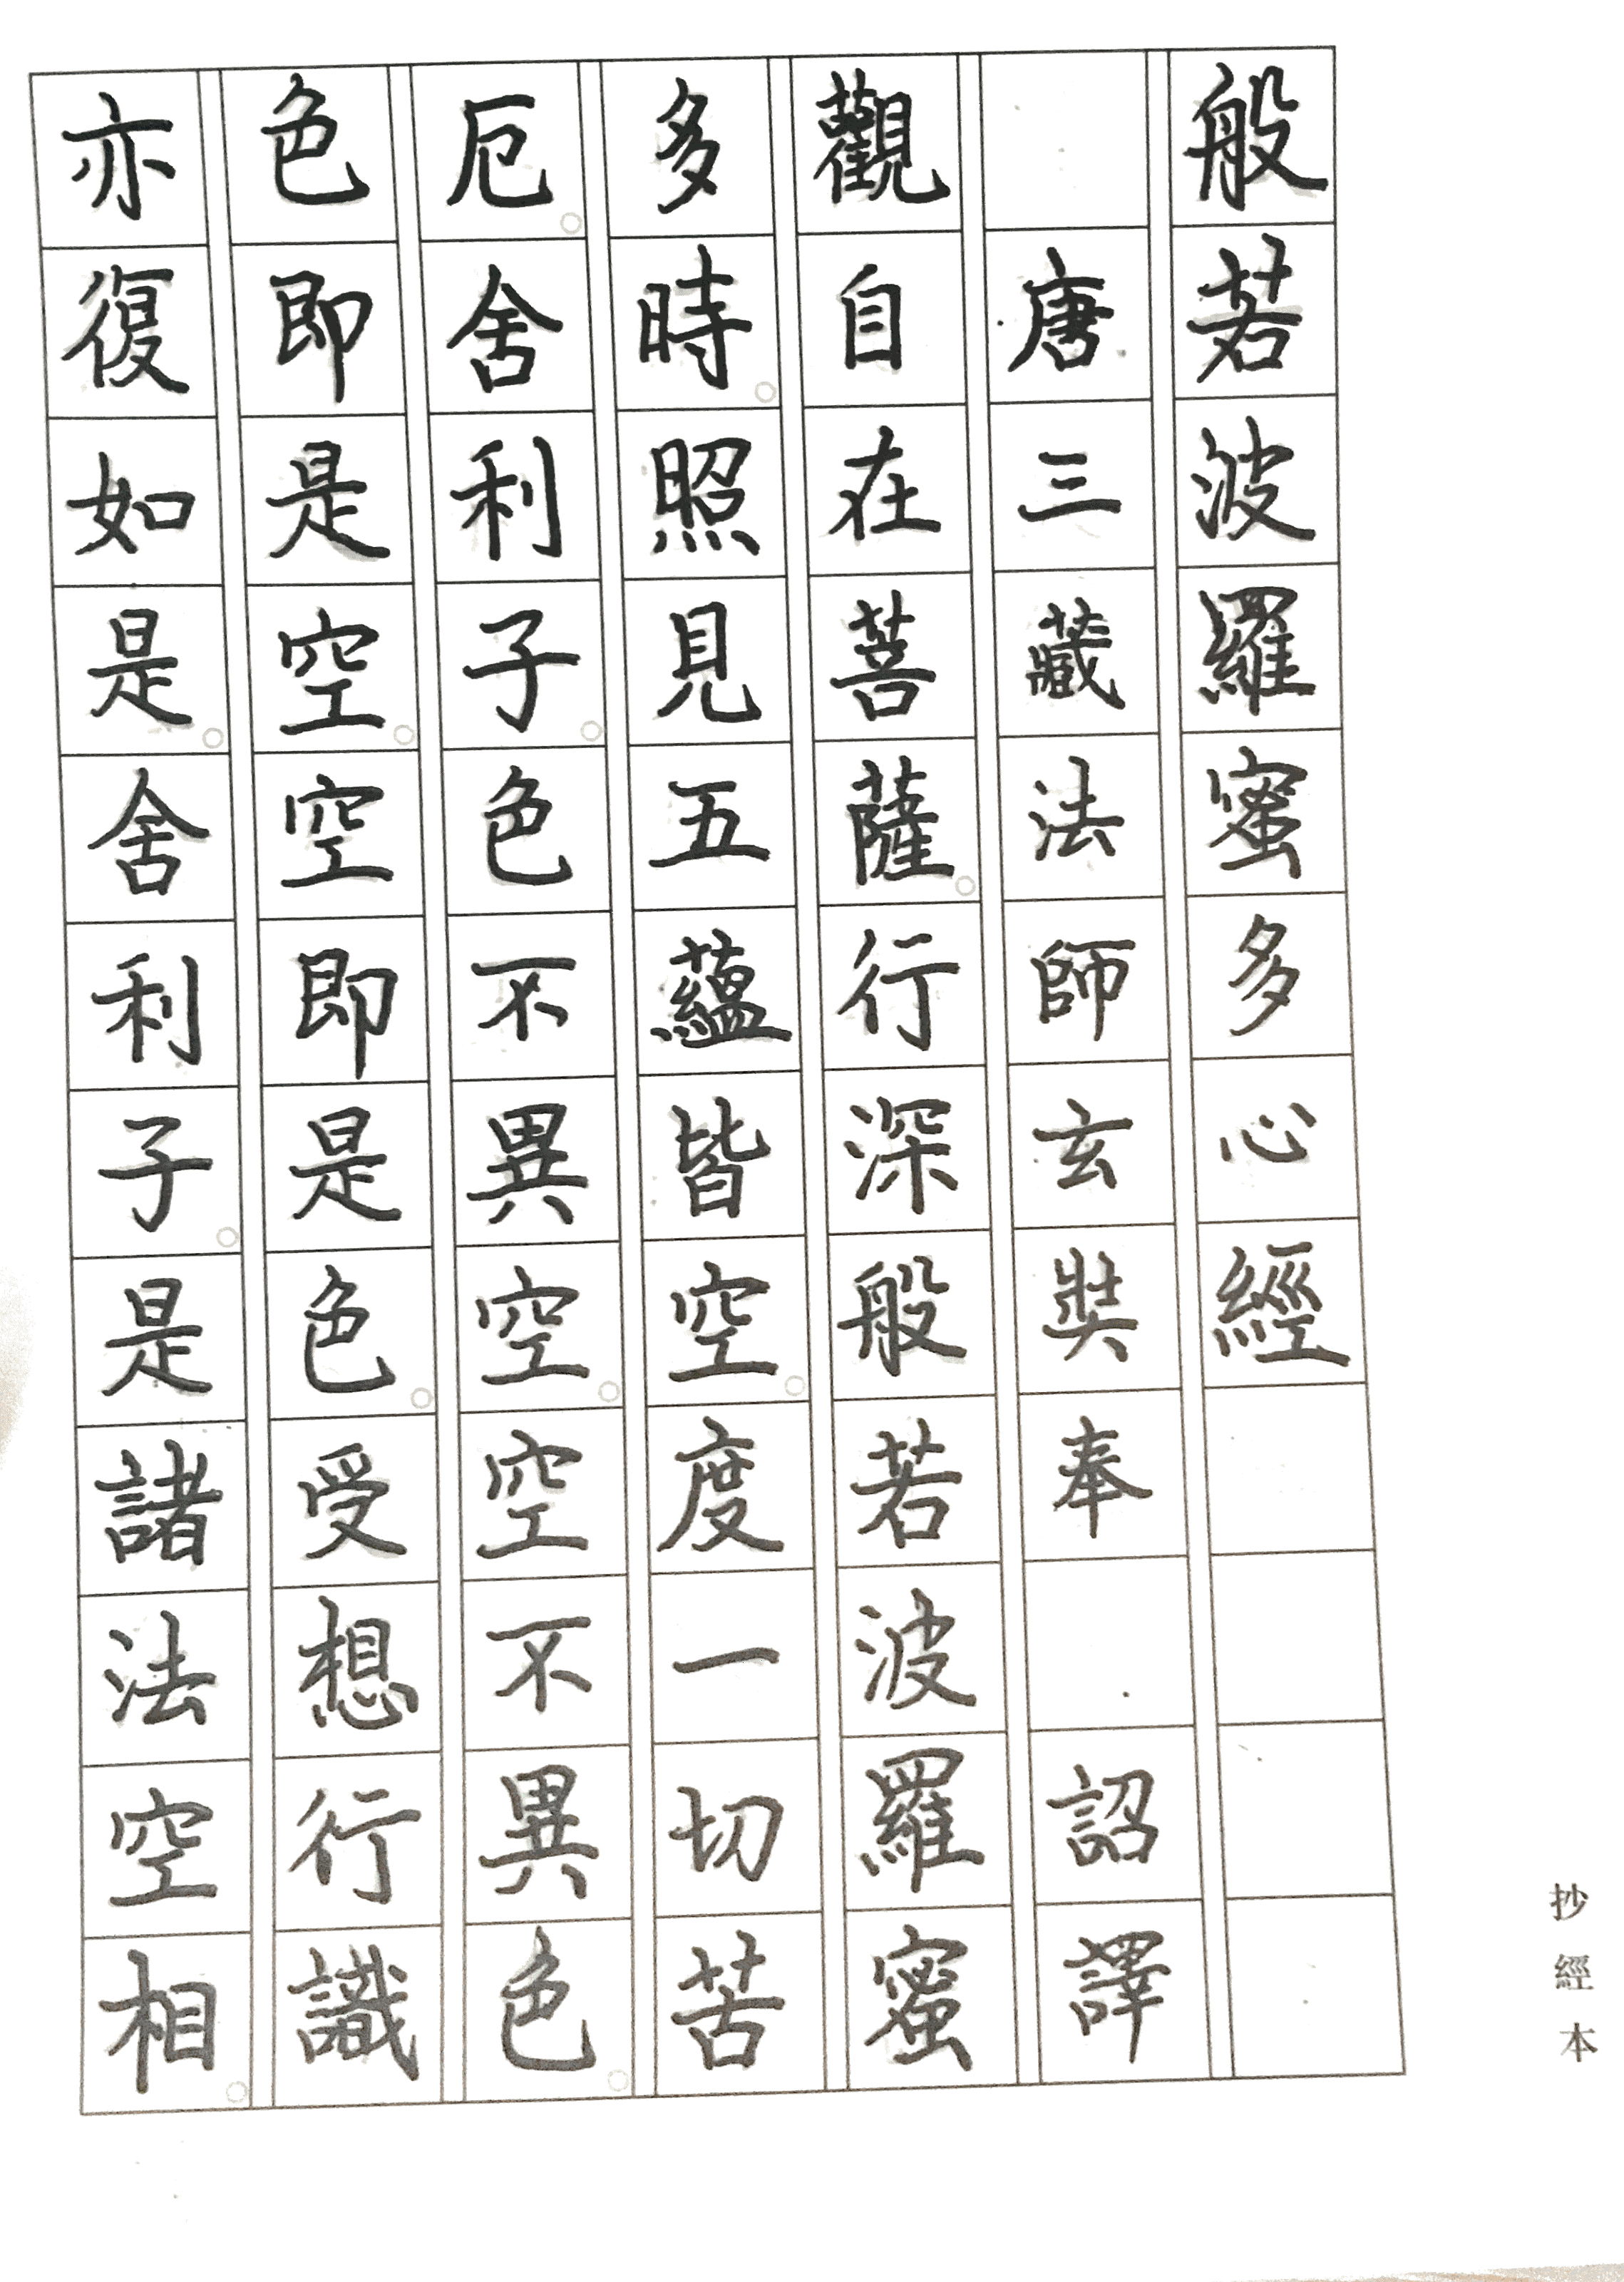 般若波羅蜜多心經
唐三藏法師玄奘奉 詔譯
觀自在菩薩。行深般若波羅蜜
多時。照見五蘊皆空。度一切苦
厄。舍利子。色不異空。空不異色。
色即是空。空即是色。受想行識
亦復如是。舍利子。是諸法空相。
抄經本